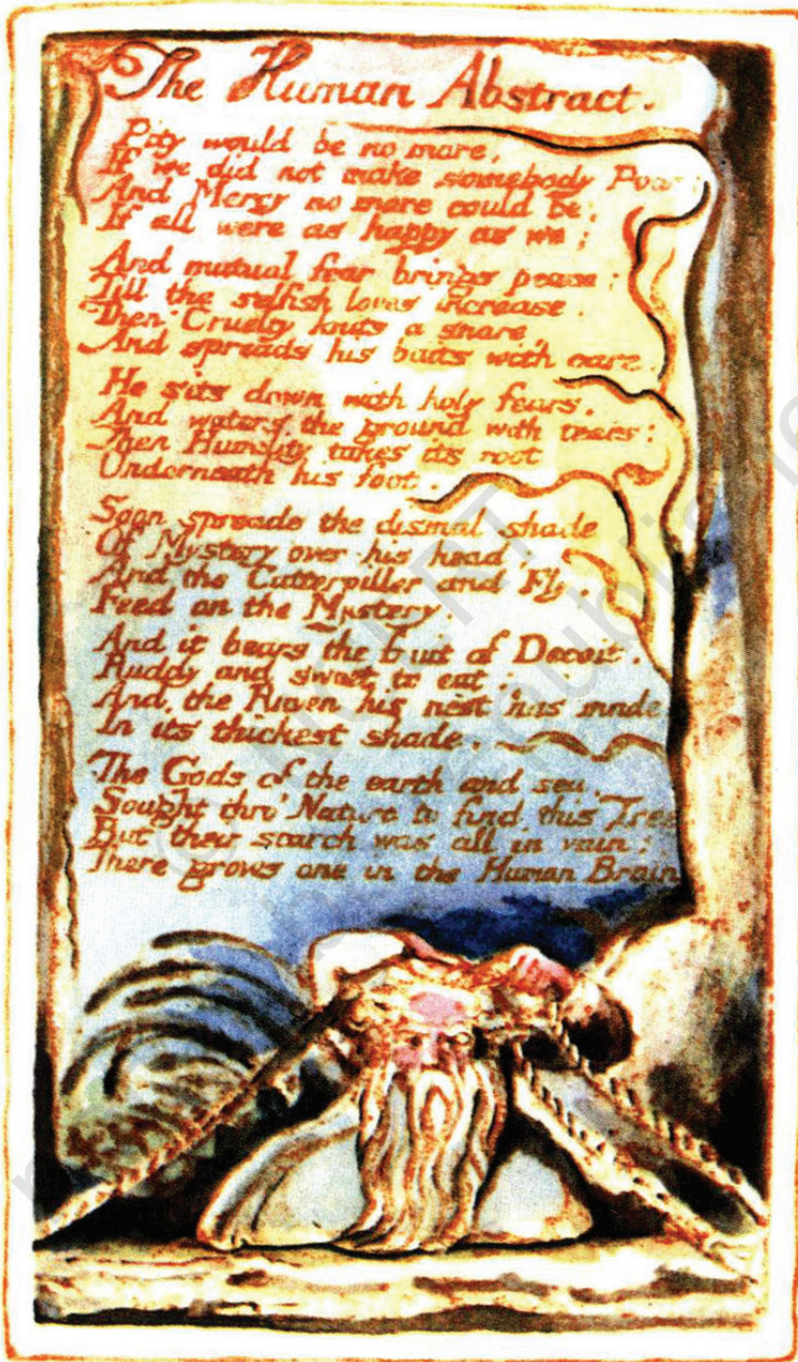 The Human Abstract.
Pity would be no more,
If we did not make somebody Poor:
And Mercy no more could be,
If all were as happy as we;
And mutual fear brings peace;
Till the selfish loves increase.
Then Cruelty knits a snare,
And spreads his baits with care.
He sits down with holy fears,
And waters the ground with tears:
Then Humility takes its root
Underneath his foot.
Soon spreads the dismal shade
Of Mystery over his head;
And the Catterpiller and Fly,
Feed on the Mystery
And it bears the fruit of Deceit,
Ruddy and sweet to eat;
And the Raven his nest has made
In its thickest shade.
The Gods of the earth and sea,
Sought thro' Nature to find this Tree
But their search was all in vain:
There grows one in the Human Brain